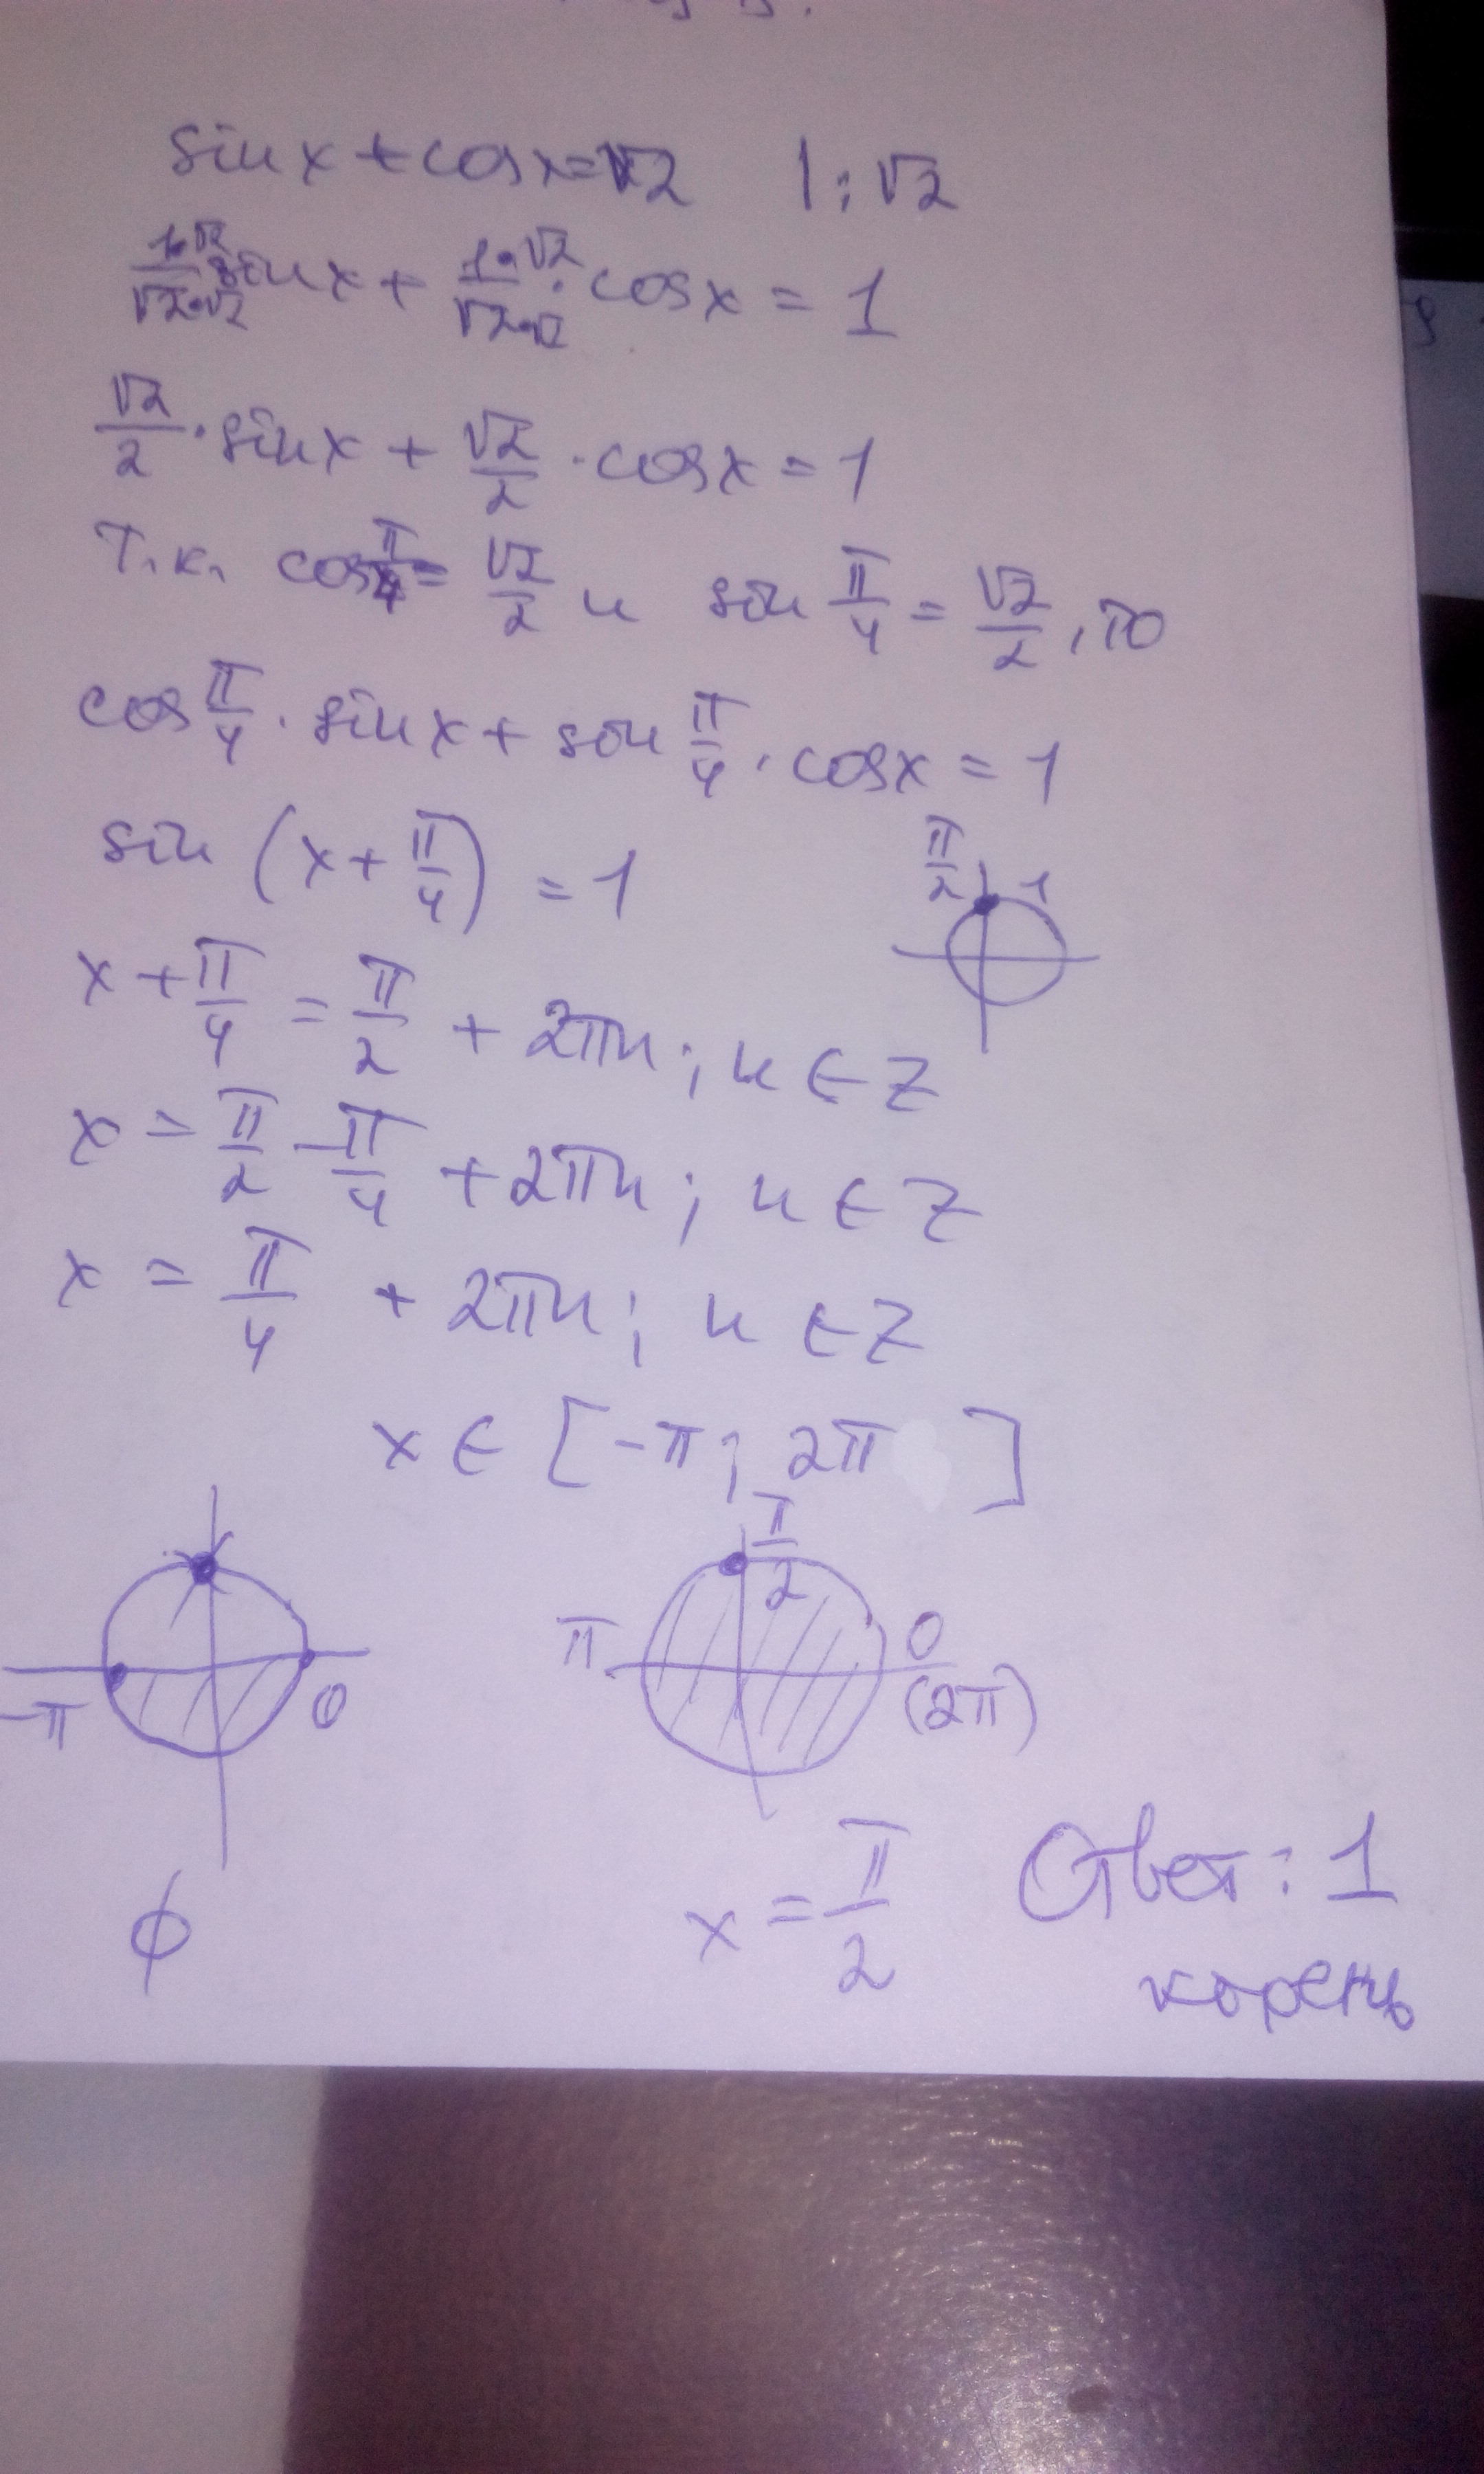 sin x + cos x = √2 | : √2
1·√2/√2·√2 sin x + 1·√2/√2·√2 · cos x = 1
√2/2 · sin x + √2/2 · cos x = 1
Т.к. cos π/4 = √2/2 и sin π/4 = √2/2, то
cos π/4 · sin x + sin π/4 · cos x = 1
sin (x + π/4) = 1
π/2 1
x + π/4 = π/2 + 2πn; n ∈ Z
x = π/2 - π/4 + 2πn; n ∈ Z
x = π/4 + 2πn; n ∈ Z
x ∈ [-π; 2π]
-π 0
π/2
π 0
(2π)
ϕ
x = π/2
Ответ: 1
корень